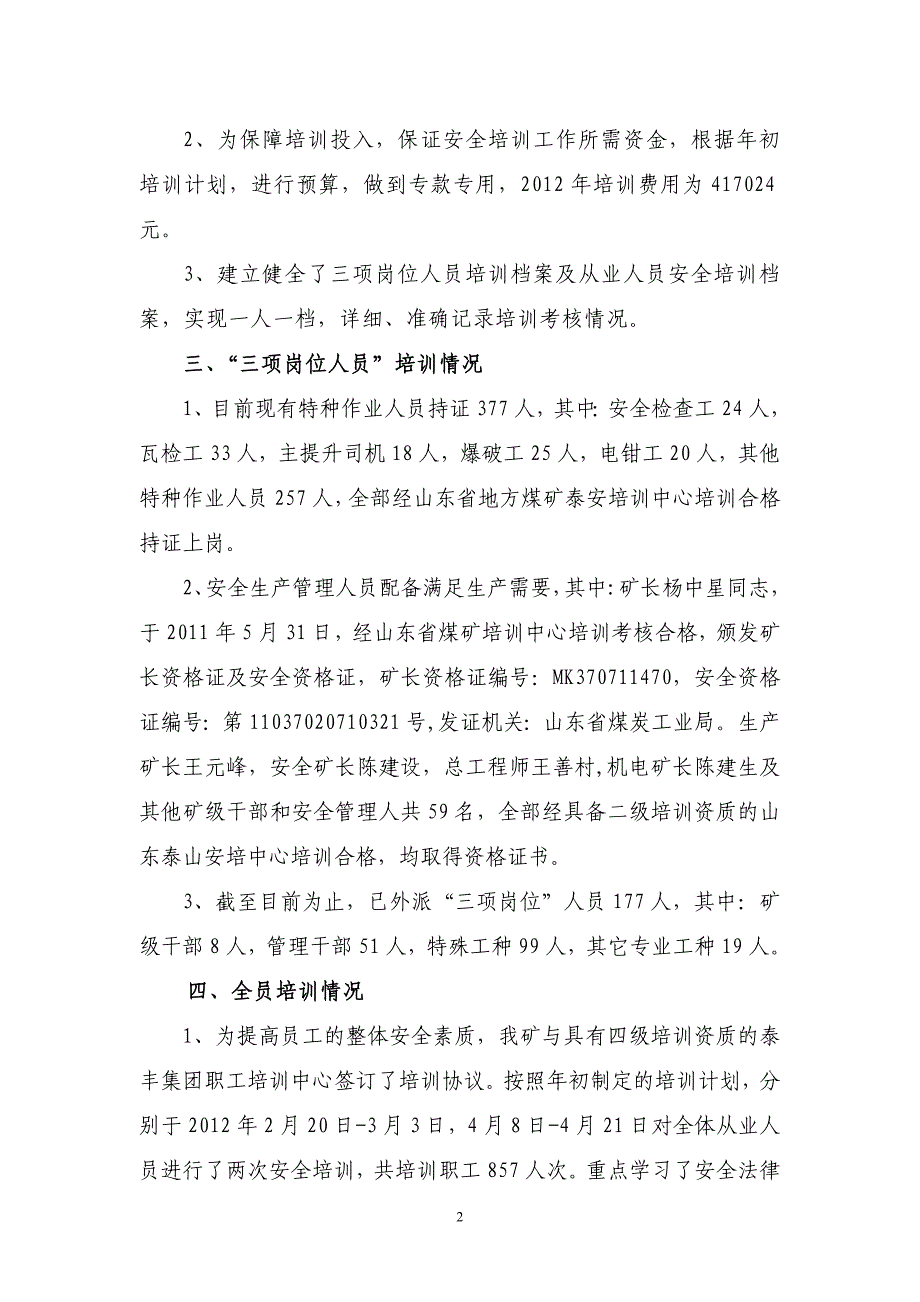 2、为保障培训投入，保证安全培训工作所需资金，根据年初
培训计划，进行预算，做到专款专用，2012 年培训费用为 417024
元。
3、建立健全了三项岗位人员培训档案及从业人员安全培训档
案，实现一人一档，详细、准确记录培训考核情况。
三、“三项岗位人员”培训情况
1、目前现有特种作业人员持证 377 人，其中：安全检查工 24 人，
瓦检工 33 人，主提升司机 18 人，爆破工 25 人，电钳工 20 人，其他
特种作业人员 257 人，全部经山东省地方煤矿泰安培训中心培训合格
持证上岗。
2、安全生产管理人员配备满足生产需要，其中：矿长杨中星同志，
于 2011 年 5 月 31 日，经山东省煤矿培训中心培训考核合格，颁发矿
长资格证及安全资格证，矿长资格证编号：MK370711470，安全资格
证编号：第 11037020710321 号,发证机关：山东省煤炭工业局。生产
矿长王元峰，安全矿长陈建设，总工程师王善村,机电矿长陈建生及
其他矿级干部和安全管理人共 59 名，全部经具备二级培训资质的山
东泰山安培中心培训合格，均取得资格证书。
3、截至目前为止，已外派“三项岗位”人员 177 人，其中：矿
级干部 8 人，管理干部 51 人，特殊工种 99 人，其它专业工种 19 人。
四、全员培训情况
1、为提高员工的整体安全素质，我矿与具有四级培训资质的泰
丰集团职工培训中心签订了培训协议。按照年初制定的培训计划，分
别于 2012 年 2 月 20 日-3 月 3 日，4 月 8 日-4 月 21 日对全体从业人
员进行了两次安全培训，共培训职工 857 人次。重点学习了安全法律
2